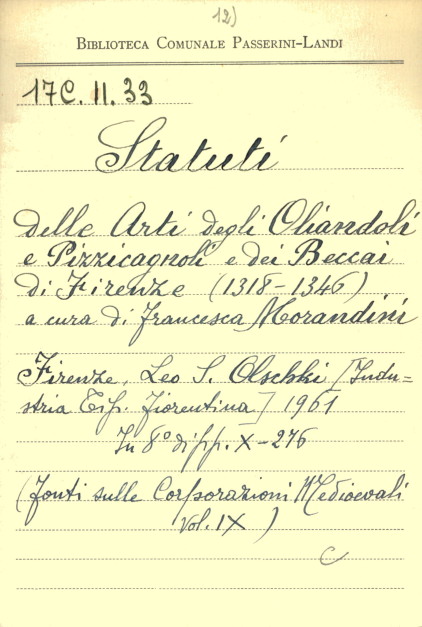 12)
BIBLIOTECA COMUNALE PASSERINI-LANDI
17C. II. 33
Statuti
delle Arti degli Oliandoli
e Pizzicagnoli e dei Beccai
di Firenze (1318-1346)
a cura di Francesca Morandini
Firenze, Leo S. Olschki [Indu=
stria Tip. Fiorentina] 1961
In 8° di pp. X-276
(Fonti sulle Corporazioni Medioevali
Vol. IX)
C